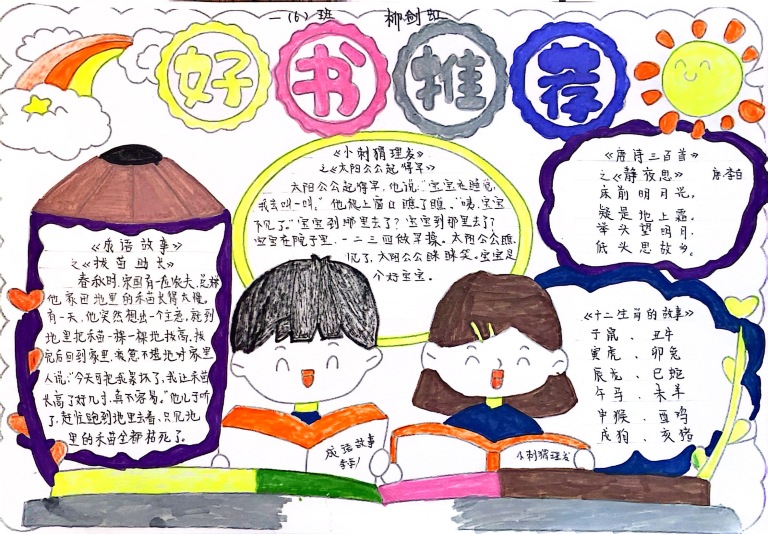 一(6)班 柳创虹
好书推荐
《成语故事》
之《拔苗助长》
春秋时,宋国有一位农夫,总嫌
他家田地里的禾苗长得太慢。
有一天,他突然想出一个主意,跑到
地里把禾苗一棵一棵地拔高,拔
完后回到家里,疲惫不堪地对家里
人说:"今天可把我累坏了,我让禾苗
长高了好几寸,真不容易。"他儿子听
了,赶忙跑到地里去看,只见地
里的禾苗全都枯死了。
《小刺猬理发》
之《太阳公公起得早》
太阳公公起得早,他说:"宝宝在睡觉,
我去叫一叫。"他爬上窗口瞧了瞧,"咦,宝宝
不见了。"宝宝到哪里去了?宝宝到哪里去了?
宝宝在院子里,一二三四做早操。太阳公公瞧
见了,太阳公公眯眯笑。宝宝是
个好宝宝。
《唐诗三百首》
之《静夜思》 唐·李白
床前明月光,
疑是地上霜。
举头望明月,
低头思故乡。
《十二生肖的故事》
子鼠、丑牛
寅虎、卯兔
辰龙、巳蛇
午马、未羊
申猴、酉鸡
戌狗、亥猪
成语故事
小刺猬理发